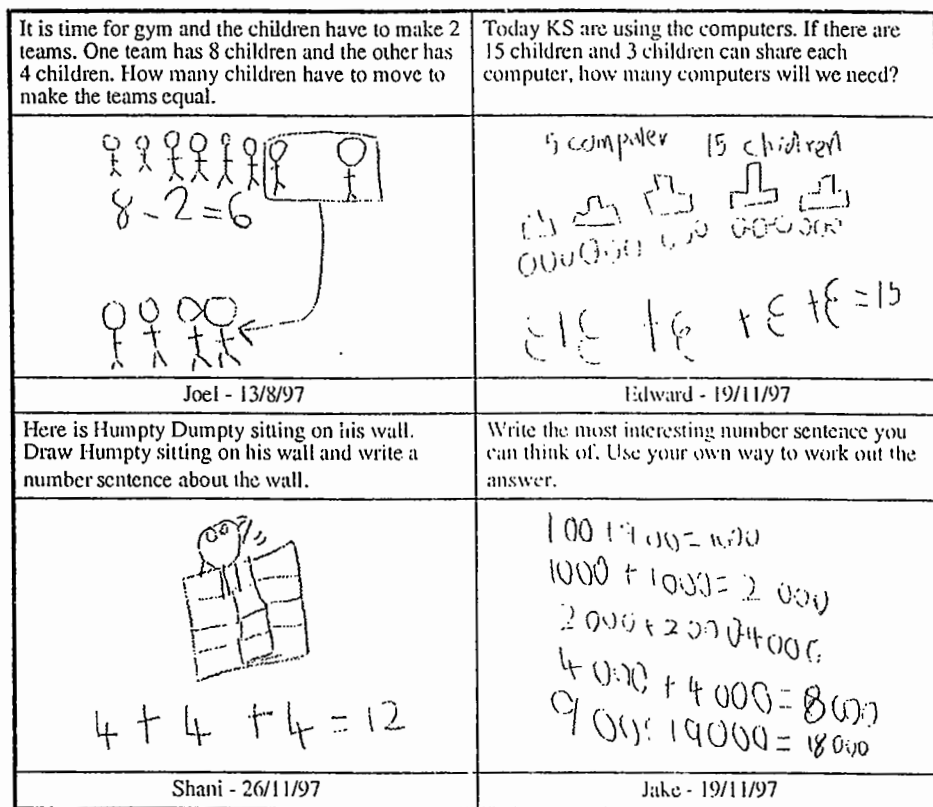 It is time for gym and the children have to make 2
teams. One team has 8 children and the other has
4 children. How many children have to move to
make the teams equal.
8 - 2 = 6
Joel - 13/8/97
Today KS are using the computers. If there are
15 children and 3 children can share each
computer, how many computers will we need?
5 computer 15 children
= 15
Edward - 19/11/97
Here is Humpty Dumpty sitting on his wall.
Draw Humpty sitting on his wall and write a
number sentence about the wall.
4 + 4 + 4 = 12
Shani - 26/11/97
Write the most interesting number sentence you
can think of. Use your own way to work out the
answer.
100
1000 + 1000 = 2000
2000 + 2000 4000
4000 + 4000 = 8000
19000 = 18000
Jake - 19/11/97